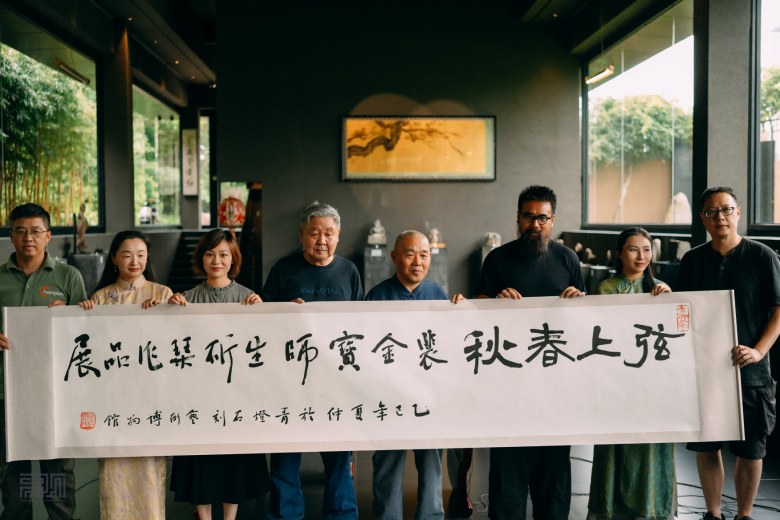 弦上春秋裴金寳師生斫琹作品展
乙巳年夏仲於青燈石刻藝術博物館